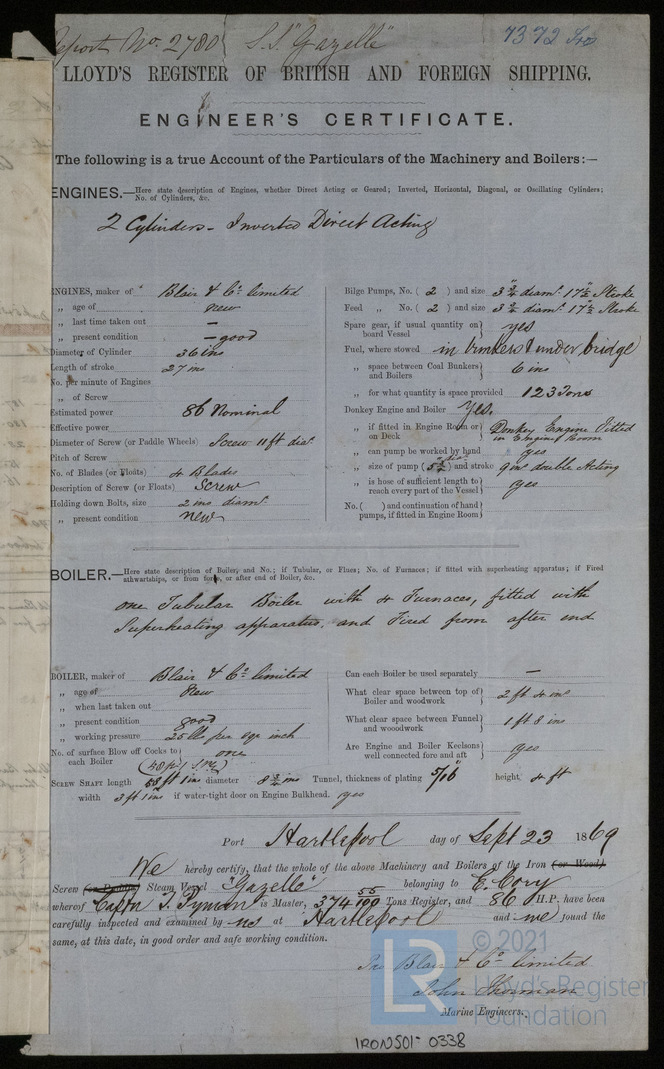 Report No. 2780 S.S "Gazelle" 7372 Iron
LLOYD'S REGISTER OF BRITISH AND FOREIGN SHIPPING.
ENGINEER'S CERTIFICATE.
The following is a true Account of the Particulars of the Machinery and Boilers:—
ENGINES.—Here state description of Engines, whether Direct Acting or Geared; Inverted, Horizontal, Diagonal, or Oscillating Cylinders;
No. of Cylinders, &c.
2 Cylinders - Inverted Direct Acting
ENGINES, maker of Blair & Co. limited
„ age of new
„ last time taken out —
„ present condition — good
Diameter of Cylinder 36 ins
Length of stroke 27 ins
No. per minute of Engines
„ of Screw
Estimated power 86 Nominal
Effective power
Diameter of Screw (or Paddle Wheels) Screw 11 ft diar.
Pitch of Screw
No. of Blades (or Floats) 4 Blades
Description of Screw (or Floats) Screw
Holding down Bolts, size 2 ins diamr.
„ present condition new
Bilge Pumps, No. ( 2 ) and size 3 3/4" diamr. 17 1/2" Stroke
Feed „ No. ( 2 ) and size 3 3/4" diamr. 17 1/2" Stroke
Spare gear, if usual quantity on board Vessel } yes
Fuel, where stowed in bunkers & under bridge
„ space between Coal Bunkers and Boilers } 6 ins
„ for what quantity is space provided 123 Tons
Donkey Engine and Boiler Yes.
„ if fitted in Engine Room or on Deck } Donkey Engine Fitted in Engine Room
„ can pump be worked by hand yes
„ size of pump ( 5 1/2 diar ) and stroke 9 ins double Acting
„ is hose of sufficient length to reach every part of the Vessel } yes
No. ( ) and continuation of hand pumps, if fitted in Engine Room }
BOILER.—Here state description of Boiler, and No.; if Tubular, or Flues; No. of Furnaces; if fitted with superheating apparatus; if Fired
athwartships, or from fore, or after end of Boiler, &c.
one Tubular Boiler with 4 Furnaces, fitted with
Superheating apparatus, and Fired from after end
BOILER, maker of Blair & Co. limited
„ age of New
„ when last taken out
„ present condition good
„ working pressure 25 lbs per sqr inch
No. of surface Blow off Cocks to each Boiler } one
Can each Boiler be used separately —
What clear space between top of Boiler and woodwork } 2 ft 4 ins
What clear space between Funnel and wooodwork } 1 ft 8 ins
Are Engine and Boiler Keelsons well connected fore and aft } yes
SCREW SHAFT length 58 ft 1 ins diameter 8 3/4 ins Tunnel, thickness of plating 5/16" height, 4 ft
width 3 ft 1 ins if water-tight door on Engine Bulkhead. yes
Port Hartlepool day of Sept 23 1869
We hereby certify, that the whole of the above Machinery and Boilers of the Iron (or Wood)
Screw (or Paddle) Steam Vessel "Gazelle" belonging to E. Cory
whereof Captn T. Pyman is Master, 374 55/100 Tons Register, and 86 H.P. have been
carefully inspected and examined by us at Hartlepool and we found the
same, at this date, in good order and safe working condition.
Pro Blair & Co. limited
John Thorman
Marine Engineers.
© 2021
LR Lloyd's Register
Foundation
IRONS01-0338